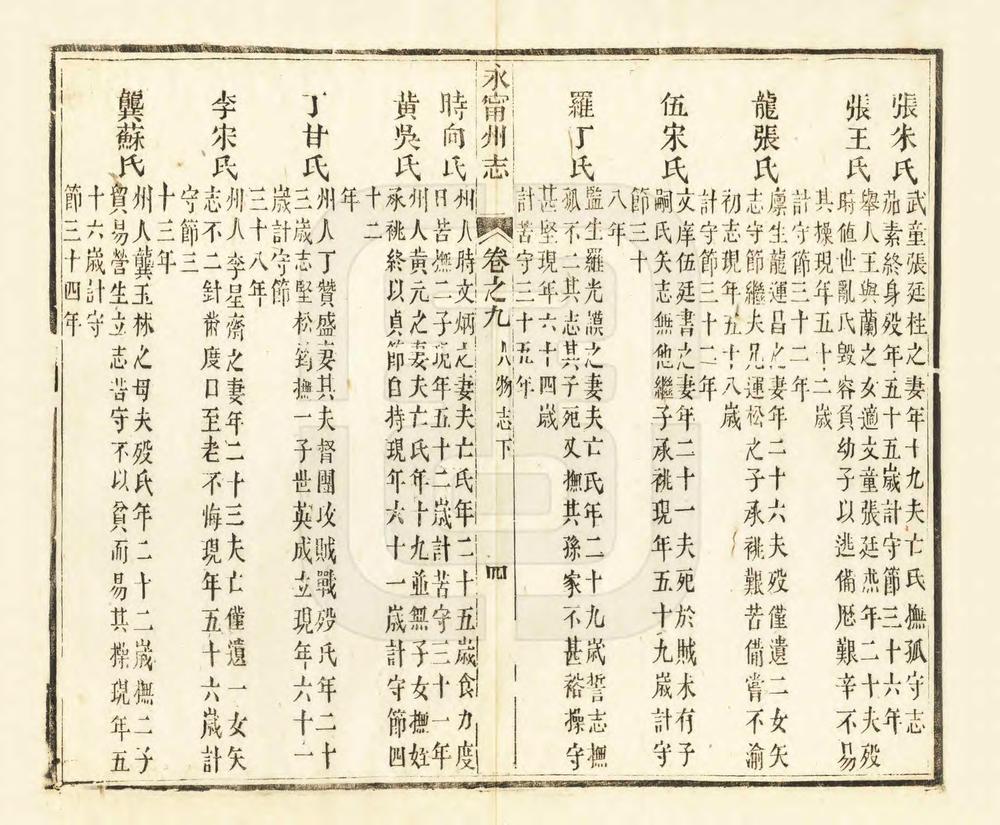 張朱氏
武童張廷柱之妻年十九夫亡氏撫孤守志
茹素終身歿年五十五歲計守節三十六年
張王氏
舉人王與蘭之女適文童張廷燕年二十夫歿
時值世亂氏毀容負幼子以逃備歷艱辛不易
其操現年五十二歲
計守節三十二年
龍張氏
廩生龍運昌之妻年二十六夫歿僅遺二女矢
志守節繼夫兄運松之子承祧艱苦備嘗不渝
初志現年五十八歲
計守節三十二年
伍宋氏
文庠伍廷書之妻年二十一夫死於賊未有子
嗣氏矢志無他繼子承祧現年五十九歲計守
節三十
八年
羅丁氏
監生羅光謨之妻夫亡氏年二十九歲誓志撫
孤不二其志其子死又撫其孫家不甚裕操守
甚堅現年六十四歲
計苦守三十五年
永甯州志
卷之九
人物志下
四
時向氏
州人時文炳之妻夫亡氏年二十五歲食力度
日苦撫二子現年五十二歲計苦守三十一年
黃吳氏
州人黃元之妻夫亡氏年十九並無子女撫姪
承祧終以貞節自持現年六十一歲計守節四
十二
年
丁甘氏
州人丁贊盛妻其夫督團攻賊戰歿氏年二十
三歲志堅松筠撫一子世英成立現年六十一
歲計守節
三十八年
李宋氏
州人李星齋之妻年二十三夫亡僅遺一女矢
志不二針黹度日至老不悔現年五十六歲計
守節三
十三年
龔蘇氏
州人龔玉林之母夫歿氏年二十二歲撫二子
貿易營生立志苦守不以貧而易其操現年五
十六歲計守
節三十四年